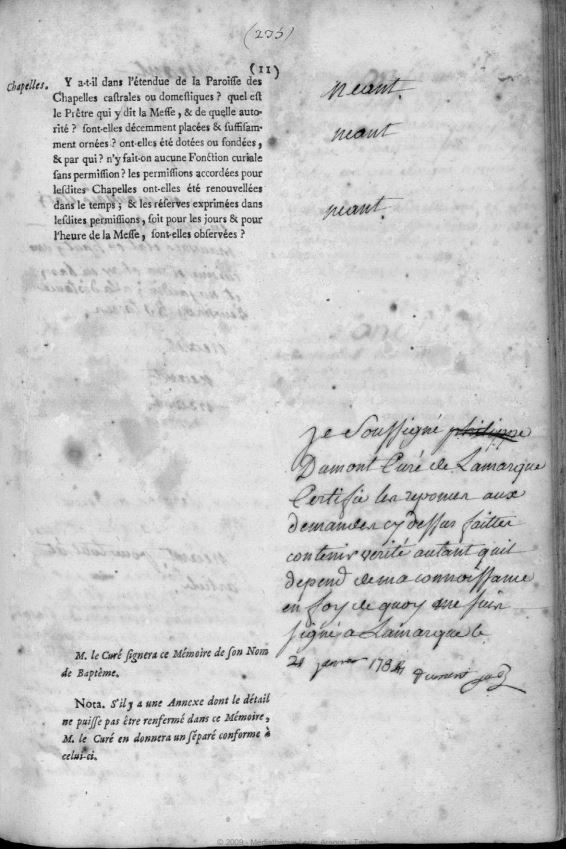 (235)
(11)
Chapelles. Y a-t-il dans l'étendue de la Paroisse des
Chapelles castrales ou domestiques ? quel est
le Prêtre qui y dit la Messe, & de quelle auto-
rité ? sont-elles décemment placées & suffisam-
ment ornées ? ont-elles été dotées ou fondées,
& par qui ? n'y fait-on aucune Fonction curiale
sans permission ? les permissions accordées pour
lesdites Chapelles ont-elles été renouvellées
dans le temps ; & les réserves exprimées dans
lesdites permissions, soit pour les jours & pour
l'heure de la Messe, sont-elles observées ?
neant.
neant
neant.
je soussigné philippe
Dumont Curé de Lamarque
Certifie les reponses aux
demandes cy dessus faittes
contenir verité autant quil
depend de ma connoissance
en foy de quoy me suis
signé a Lamarque le
M. le Curé signera ce Mémoire de son Nom
de Baptême.
janvier
Nota. S'il y a une Annexe dont le détail
ne puisse pas être renfermé dans ce Mémoire,
M. le Curé en donnera un séparé conforme à
celui-ci.
© 2009 - Médiathèque Louis Aragon - Tarbes